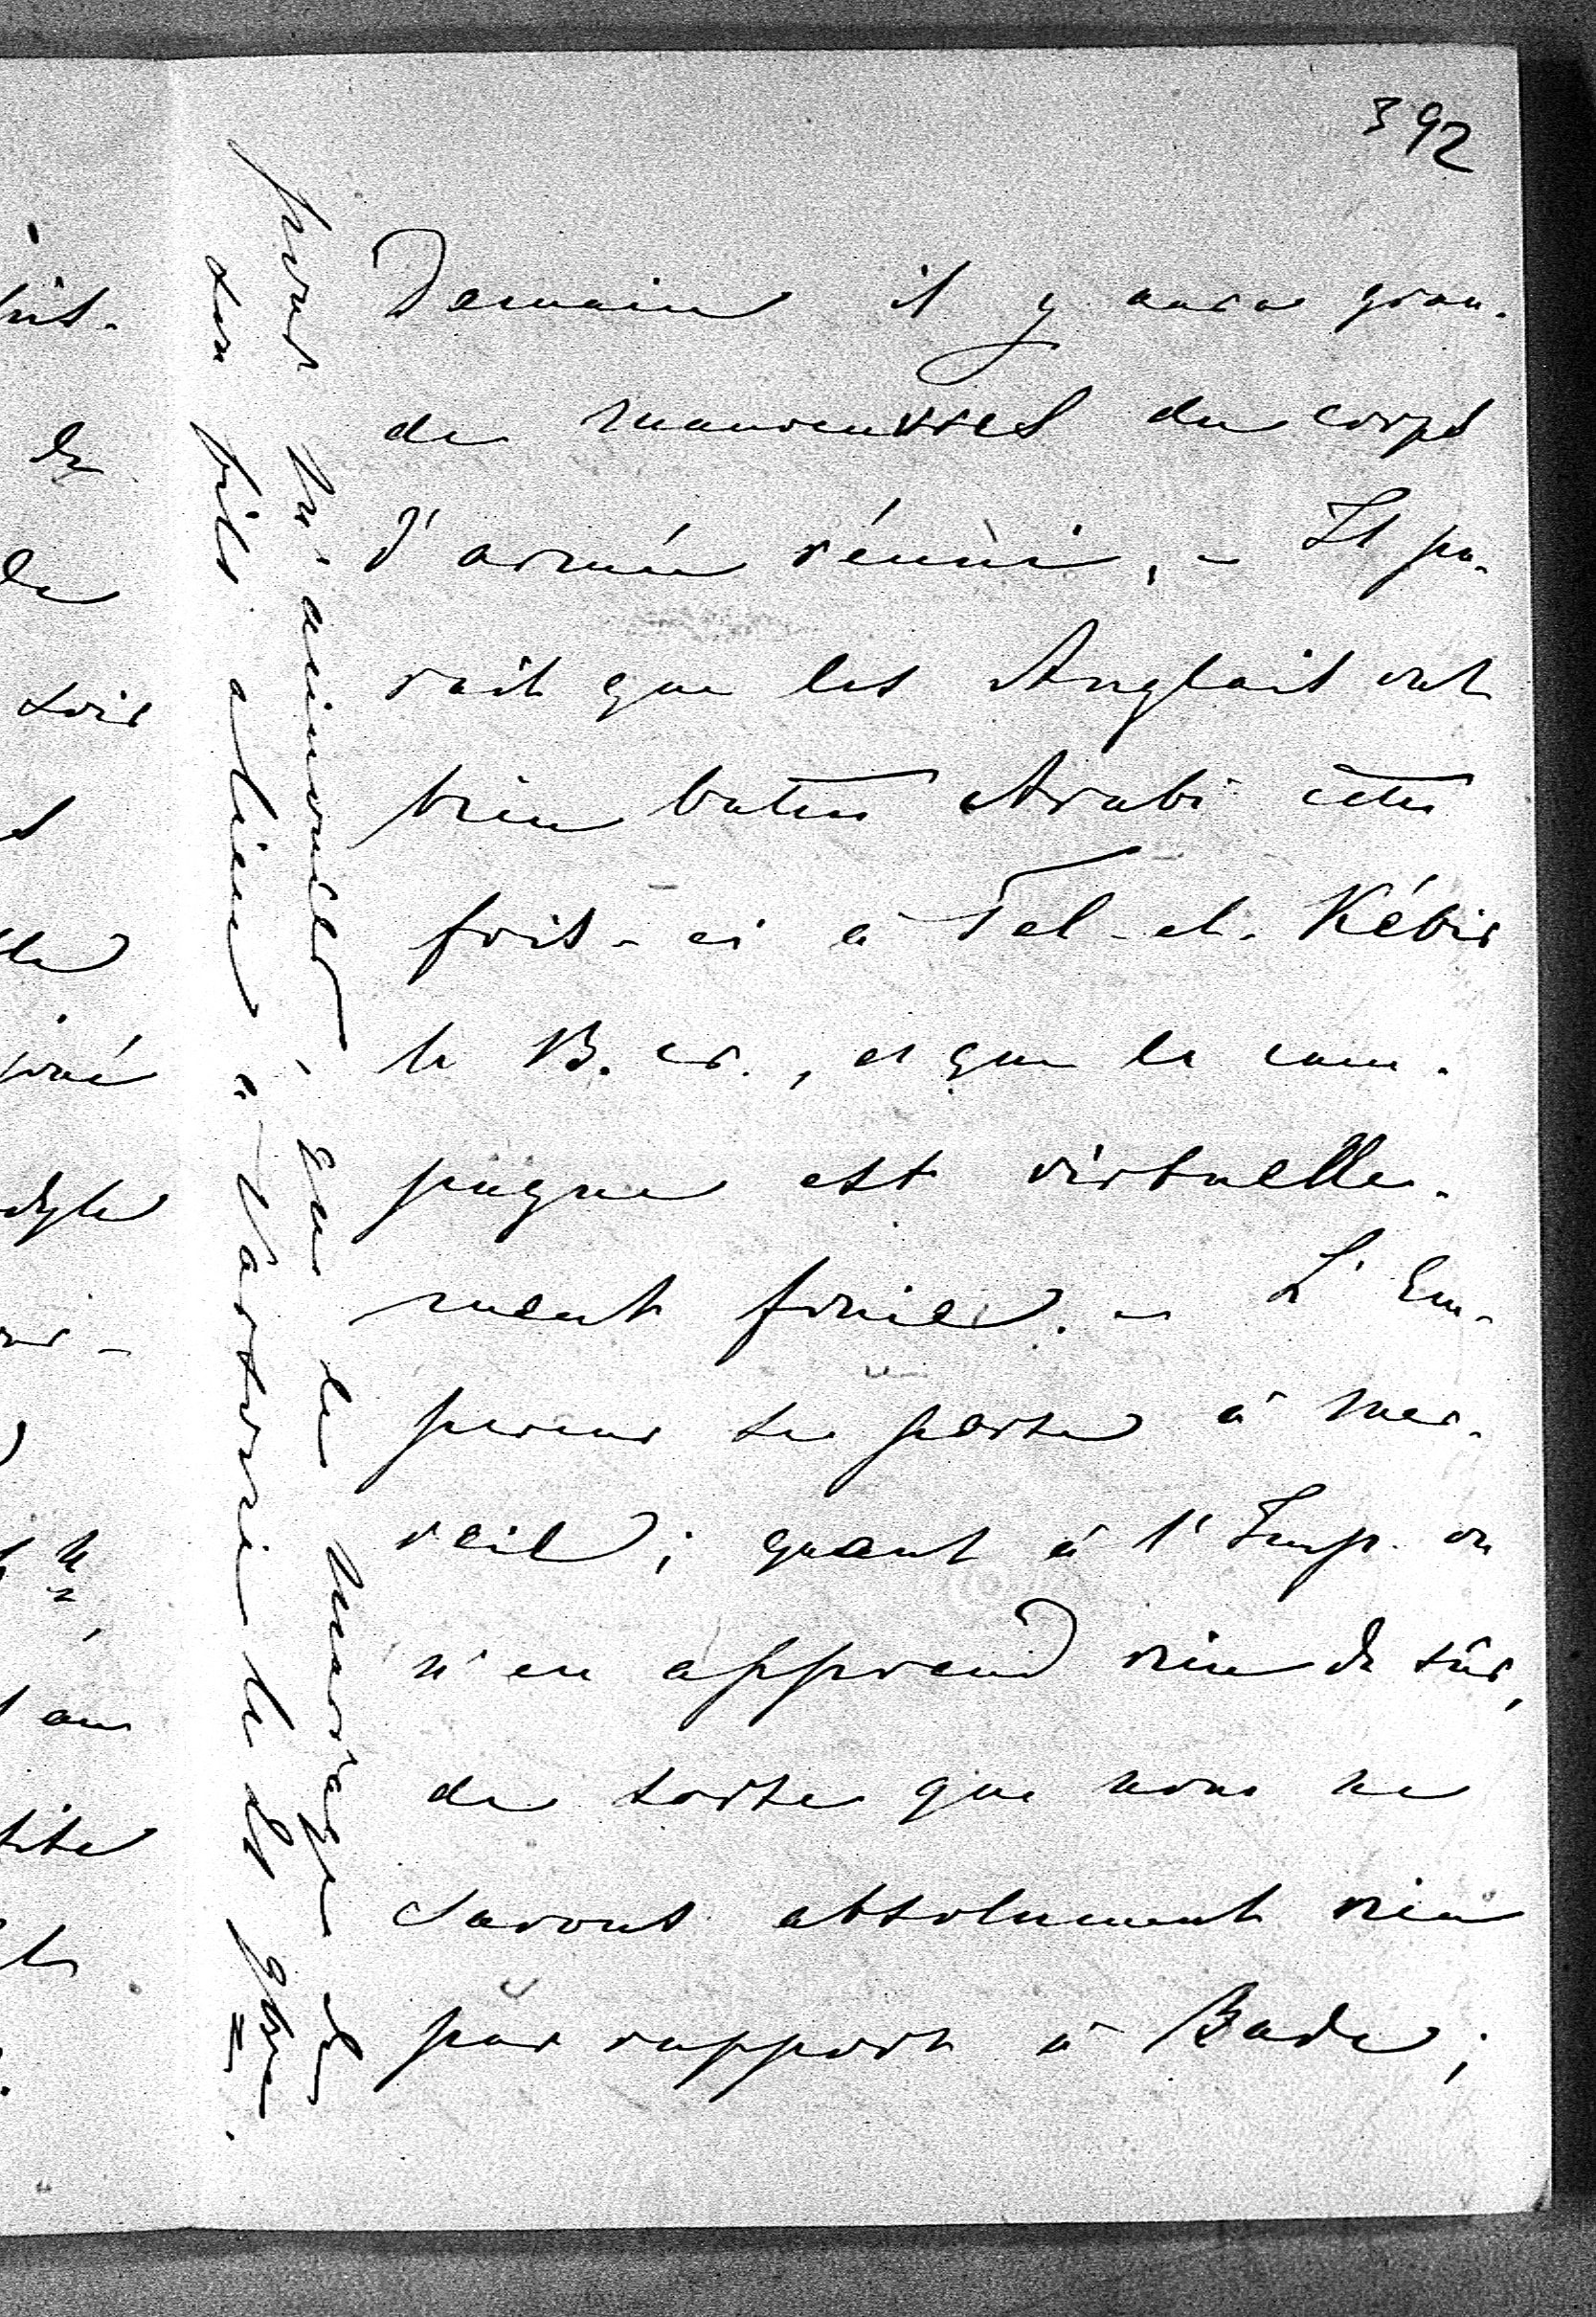 392
Demain il y aura gran-
de manoeuvres du corps
d'armée réuni. - Il pa-
rait que les Anglais ont
bien batu Arabi cette
fois-ci à Tel-el-Kébir
le 13. cr., et que la cam-
pagne est virtuelle-
ment finie. - L'Em-
pereur se porte à mer-
veil; quant à l'Imp. on
n'en apprend rien de sûr,
de sorte que nous ne
savons absolument rien
par rapport à Bade;
pour m'annoncer, que le mariage de
son fils a lieu à Varsovie le 28